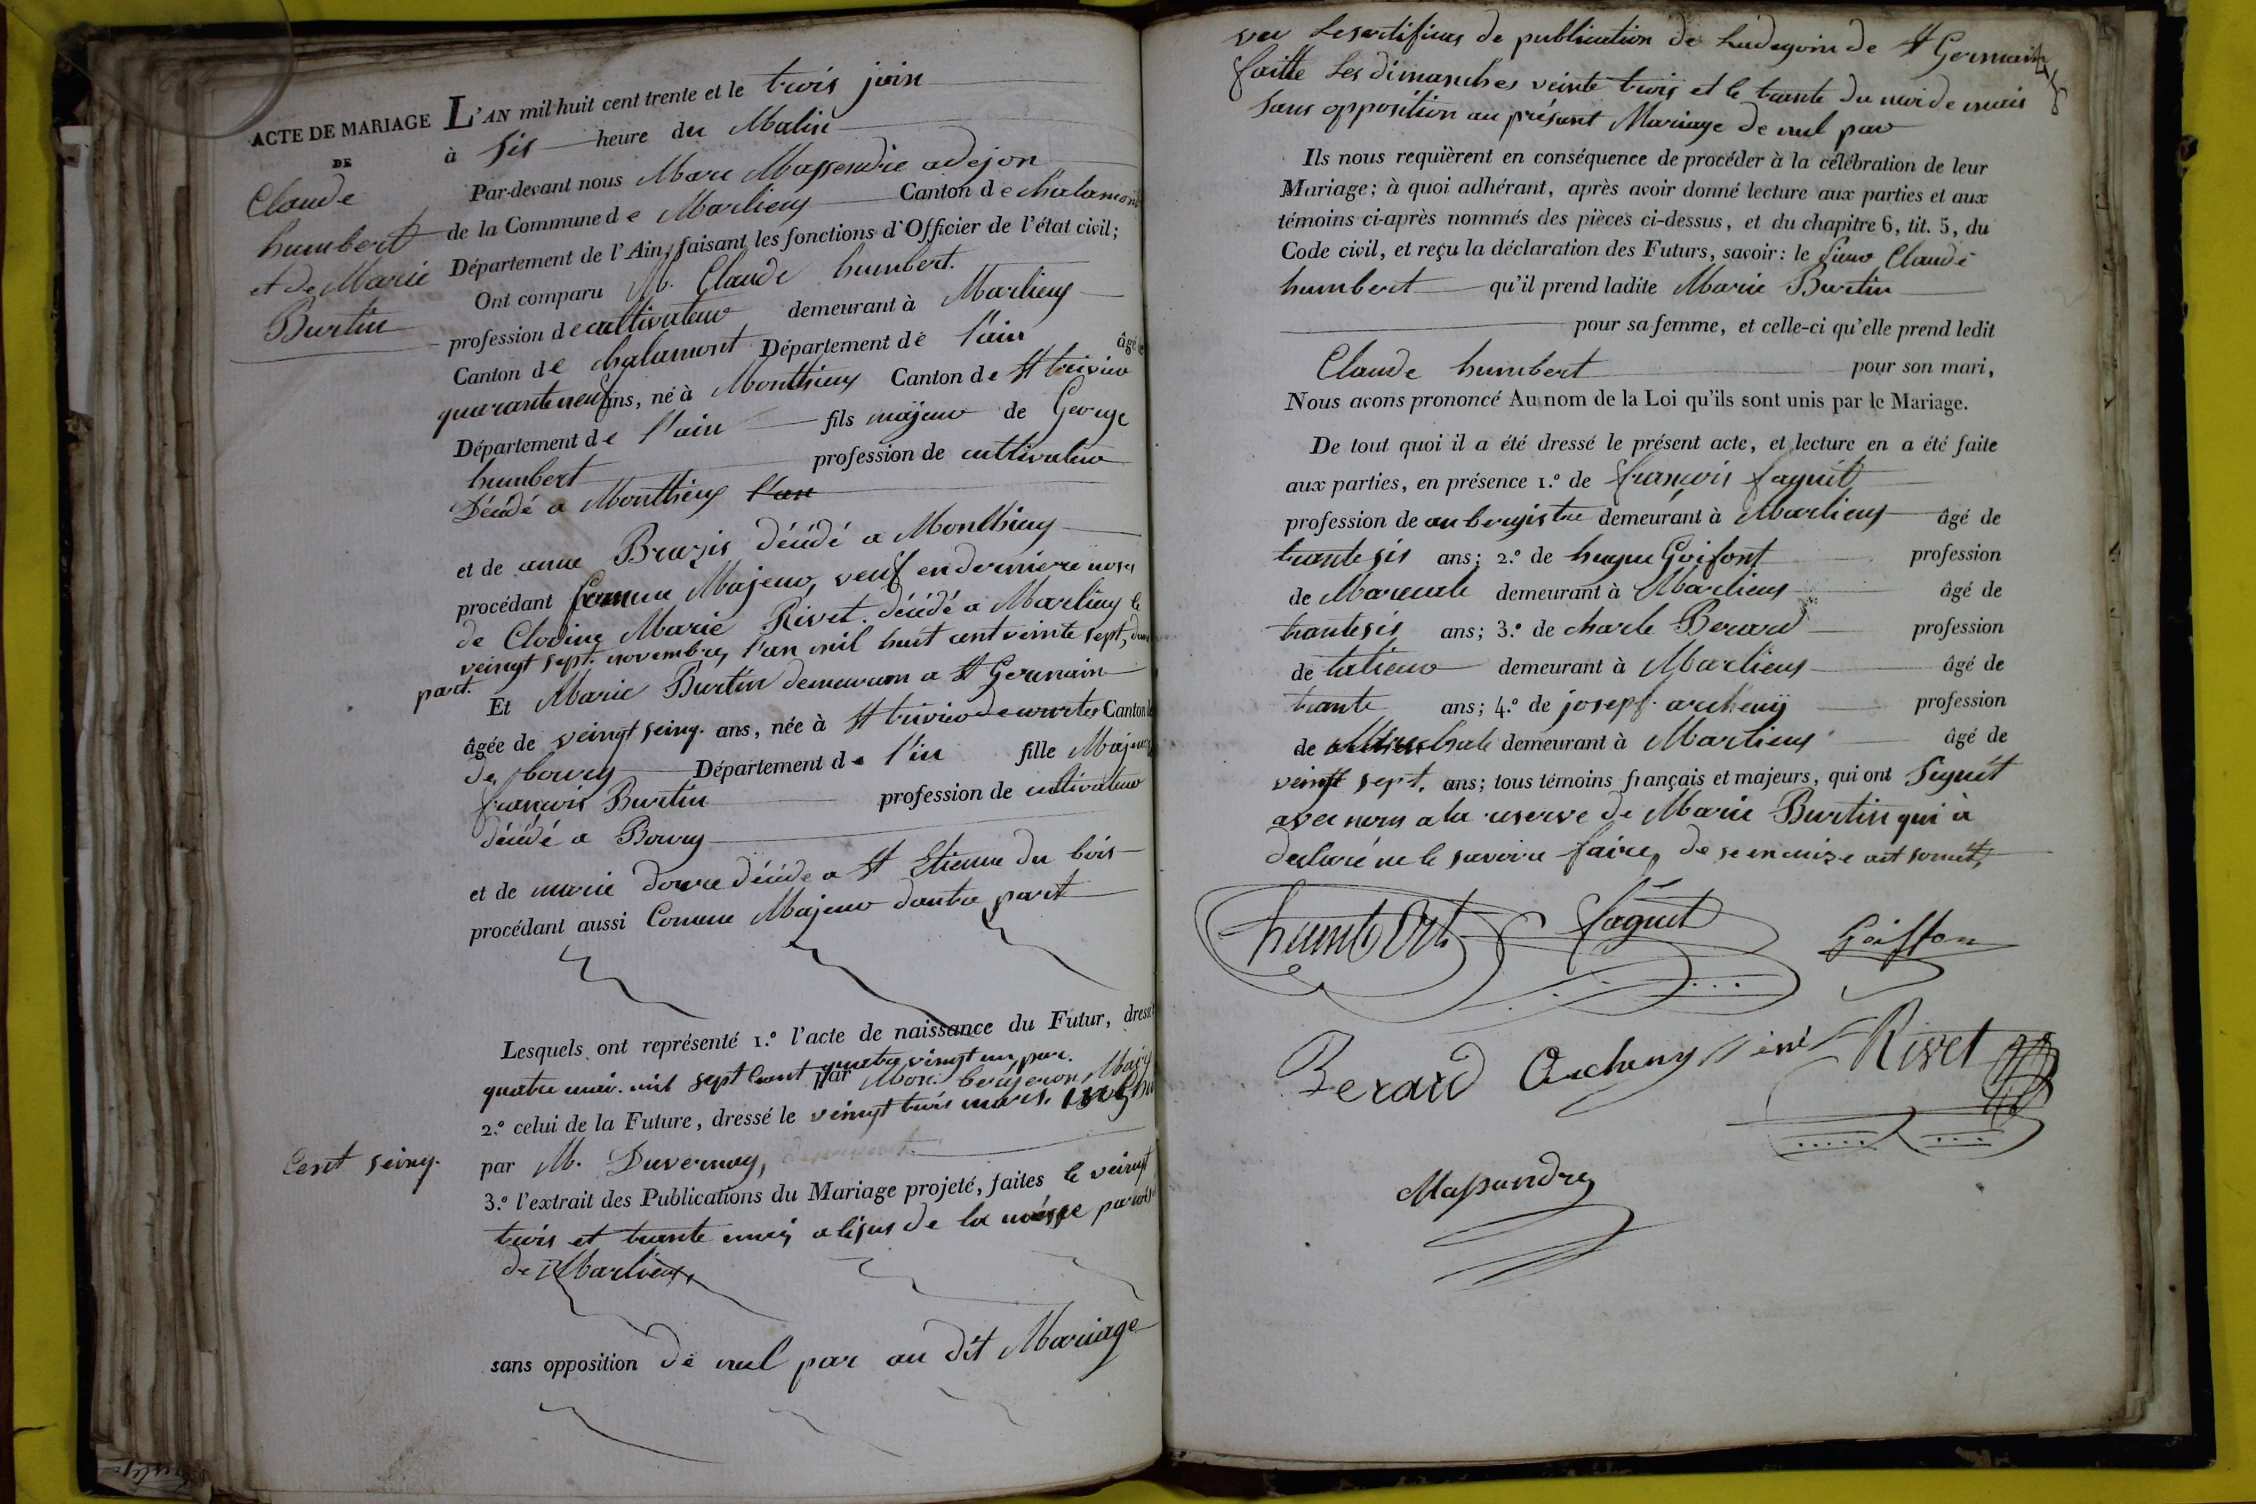 ACTE DE MARIAGE
DE
Claude
humbert
et de Marie
Burtin
L'AN mil huit cent trente et le trois juin
à sis heure du Matin
Par-devant nous Marc Massendre adejon
de la Commune de Marlieux Canton de chalamont
Département de l'Ain, faisant les fonctions d'Officier de l'état civil;
Ont comparu M. Claude humbert.
profession de cultivateur demeurant à Marlieux
Canton de chalamont Département de l'ain âgé de
quarante neuf ans, né à Monthieux Canton de St trivier
Département de l'ain fils majeur de George
humbert profession de cultivateur
Décédé a Monthieux l'an
et de anne Brazis décédé a Monthieux
procédant comme Majeur, veuf en derniere noses
de Clodine Marie Rivet. décédé a Marlieux le
veingt sept. novembre, l'an mil huit cent veinte sept,
part.
Et Marie Burtin demeuran a St Germain
âgée de veingt seinq. ans, née à St trivier de courtes Canton
de bourg Département de l'in fille Majeur
françois Burtin profession de cultivateur
décédé a Bourg
et de marie doure décéde a St Etienne du bois
procédant aussi Comme Majeur dautre part
Lesquels ont représenté 1.º l'acte de naissance du Futur, dressé
quatre mai. mil sept Cent quatre vingt un, par.
par Mon. bergeron, Maire
2.º celui de la Future, dressé le veingt trois mars.
Cent seinq.
par M. Duvernay,
3.º l'extrait des Publications du Mariage projeté, faites le veingt
trois et trante mai, a lisus de la messe parois
de Marlieux,
sans opposition de nul par au dit Mariage
vu Les certificas de publication de Ladegoin de St Germain
faitte Les dimanches veinte trois et le trante du moi de mais
sans opposition au présant Mariage de nul par
Ils nous requièrent en conséquence de procéder à la célébration de leur
Mariage; à quoi adhérant, après avoir donné lecture aux parties et aux
témoins ci-après nommés des pièces ci-dessus, et du chapitre 6, tit. 5, du
Code civil, et reçu la déclaration des Futurs, savoir: le sieur Claude
humbert qu'il prend ladite Marie Burtin
pour sa femme, et celle-ci qu'elle prend ledit
Claude humbert pour son mari,
Nous avons prononcé Au nom de la Loi qu'ils sont unis par le Mariage.
De tout quoi il a été dressé le présent acte, et lecture en a été faite
aux parties, en présence 1.º de françois faguet
profession de aubergistre demeurant à Marlieux âgé de
trante sis ans; 2.º de hugue Goifont profession
de Marechale demeurant à Marlieux âgé de
trante sis ans; 3.º de charle Berard profession
de talieur demeurant à Marlieux âgé de
trante ans; 4.º de josepf. archeny profession
de demeurant à Marlieux âgé de
veingt sept. ans; tous témoins français et majeurs, qui ont Signét
avec nous a la reserve de Marie Burtin qui à
declaré ne le savoire faire, de
humbert faguet Goiffon
Berard Archeny Rivet
Massandre